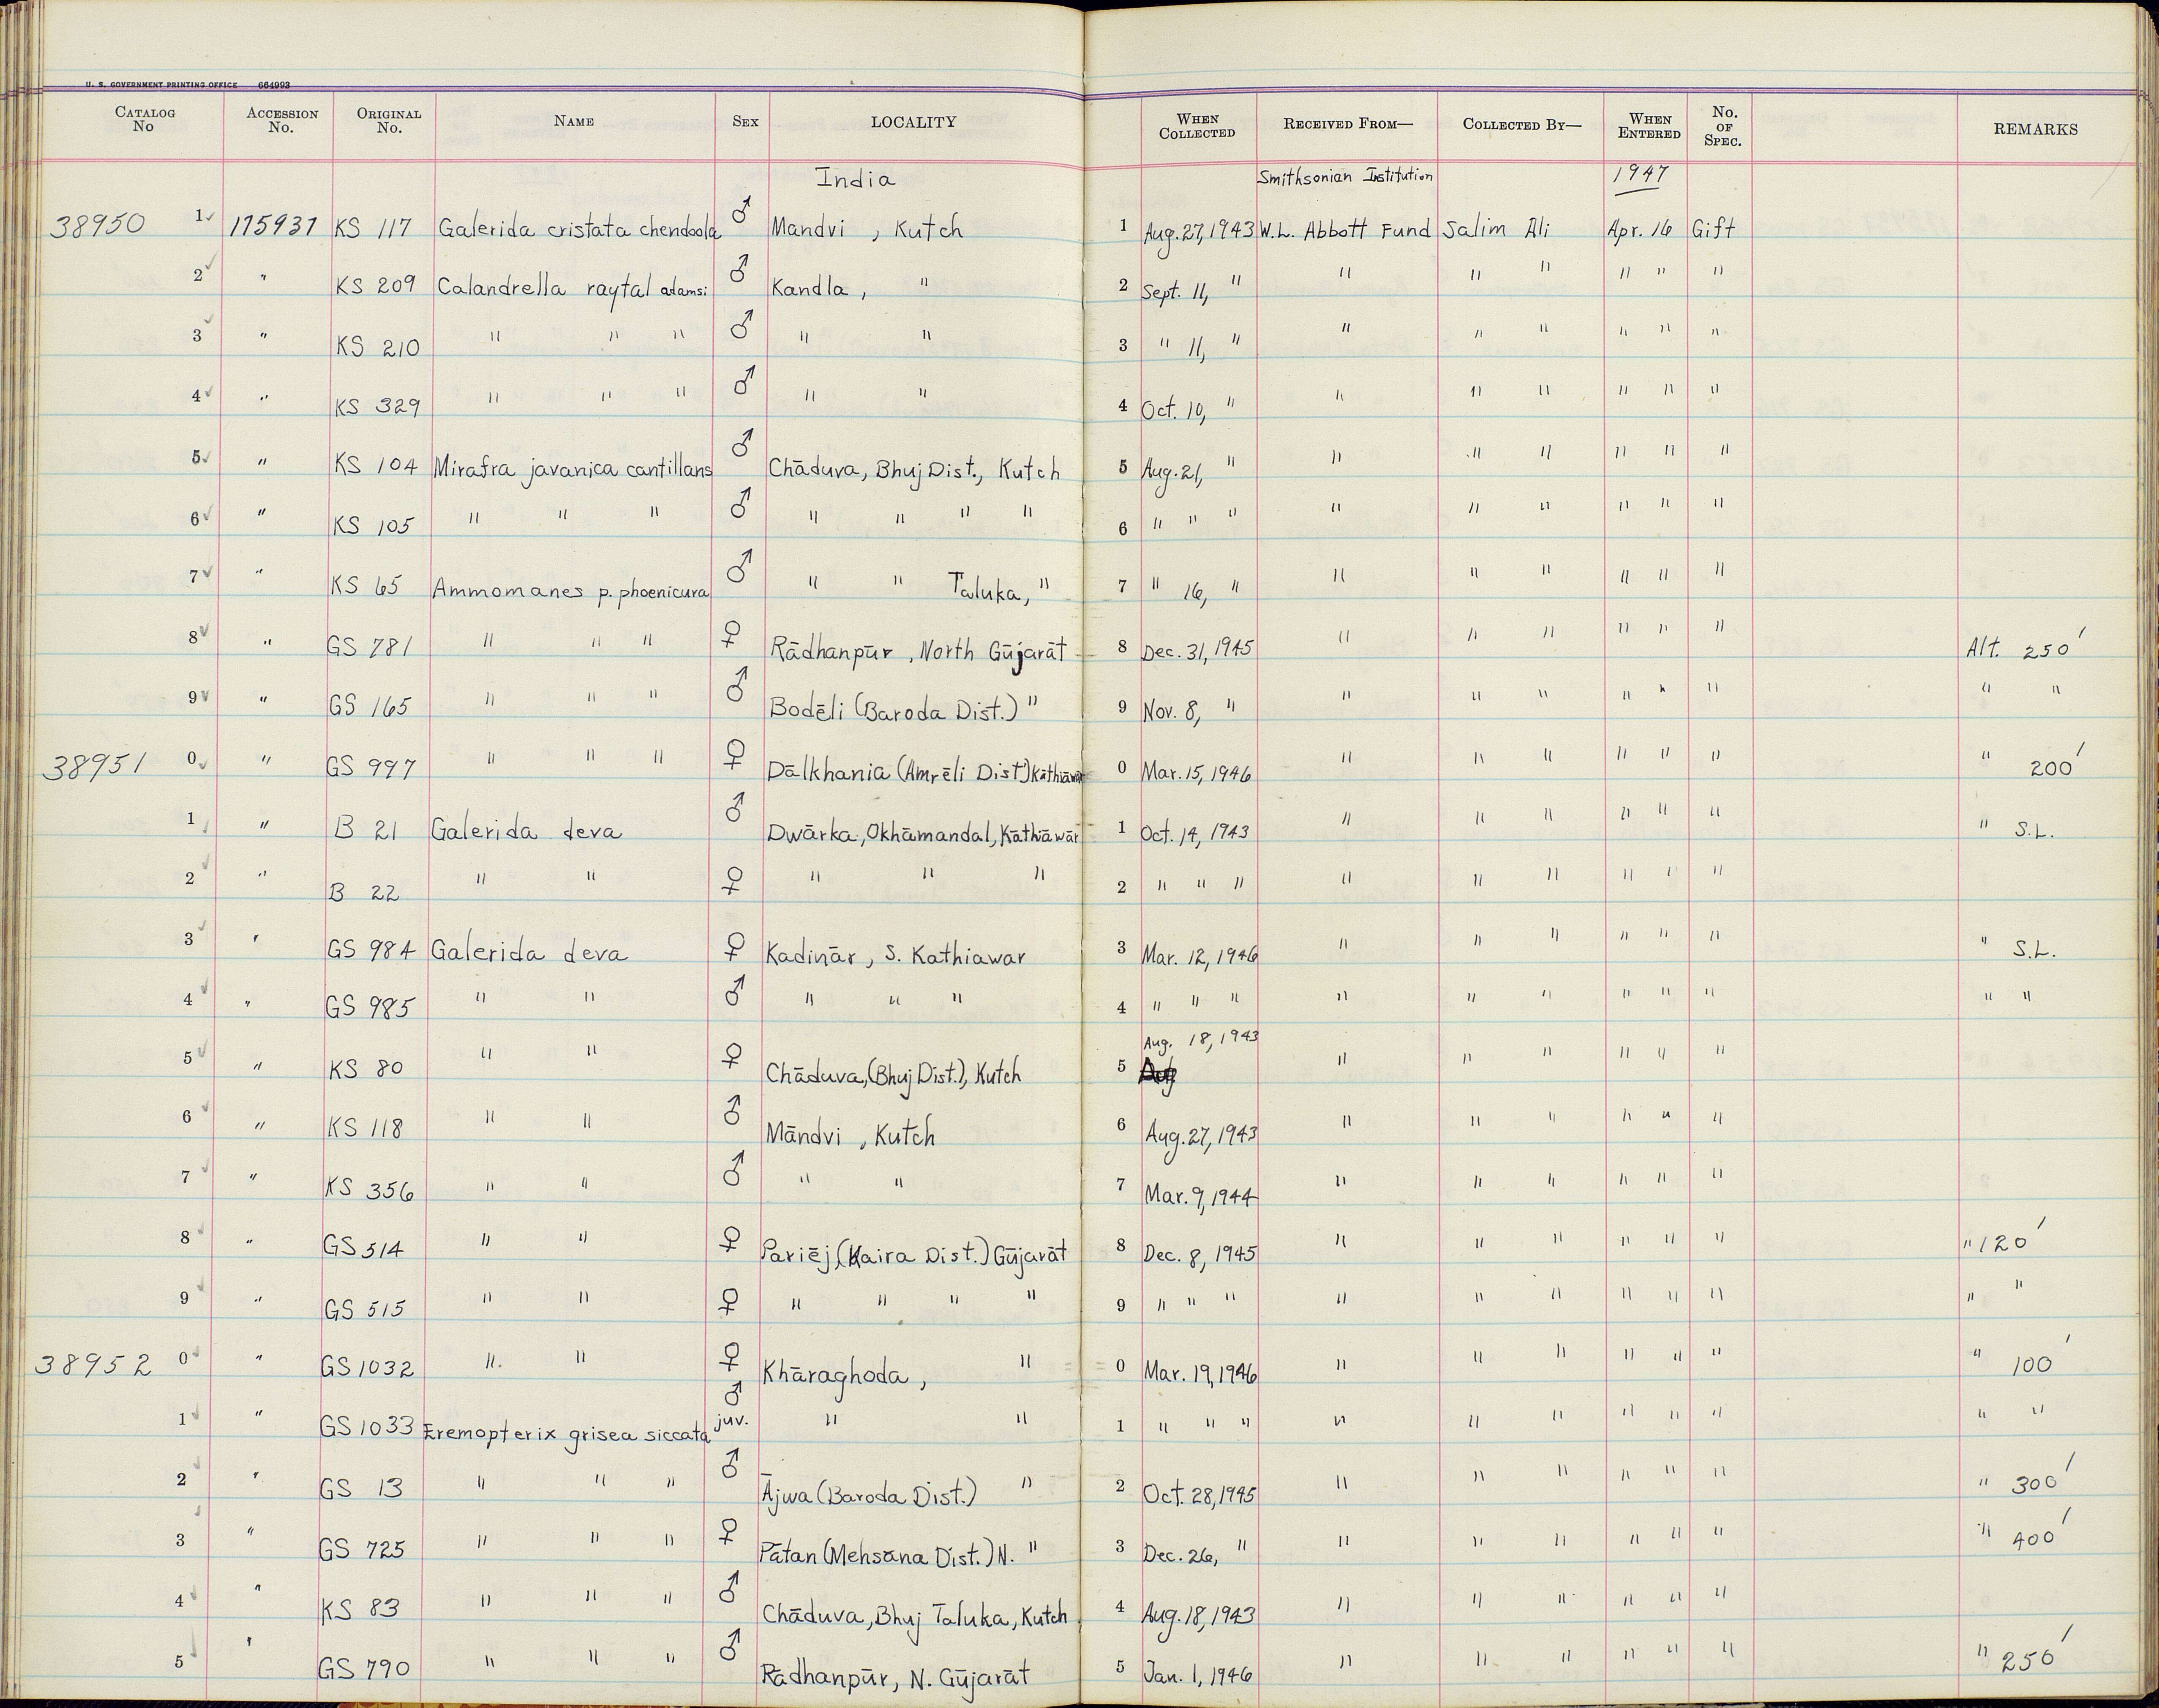 U. S. GOVERNMENT PRINTING OFFICE 664993
CATALOG No ACCESSION No. ORIGINAL No. NAME SEX LOCALITY WHEN COLLECTED RECEIVED FROM— COLLECTED BY— WHEN ENTERED No. OF SPEC. REMARKS
India Smithsonian Institution 1947
38950 1 175937 KS 117 Galerida cristata chendoola ♂ Mandvi , Kutch 1 Aug. 27, 1943 W.L. Abbott Fund Salim Ali Apr. 16 Gift
2 " KS 209 Calandrella raytal adamsi ♂ Kandla , " 2 Sept. 11, " " " " " " "
3 " KS 210 " " " ♂ " " 3 " 11, " " " " " " "
4 " KS 329 " " " ♂ " " 4 Oct. 10, " " " " " " "
5 " KS 104 Mirafra javanica cantillans ♂ Chāduva, Bhuj Dist., Kutch 5 Aug. 21, " " " " " " "
6 " KS 105 " " " ♂ " " " " 6 " " " " " " " " "
7 " KS 65 Ammomanes p. phoenicura ♂ " " Taluka, " 7 " 16, " " " " " " "
8 " GS 781 " " " ♀ Rādhanpūr , North Gūjarāt 8 Dec. 31, 1945 " " " " " " Alt. 250'
9 " GS 165 " " " ♂ Bodēli (Baroda Dist.) " 9 Nov. 8, " " " " " " " " "
38951 0 " GS 997 " " " ♀ Dālkhania (Amrēli Dist) Kāthiāwār 0 Mar. 15, 1946 " " " " " " " 200'
1 " B 21 Galerida deva ♂ Dwārka, Okhāmandal, Kāthiāwār 1 Oct. 14, 1943 " " " " " " " S.L.
2 " B 22 " " ♀ " " " 2 " " " " " " " " "
3 " GS 984 Galerida deva ♀ Kadinār , S. Kathiawar 3 Mar. 12, 1946 " " " " " " " S.L.
4 " GS 985 " " ♂ " " " 4 " " " " " " " " " " "
5 " KS 80 " " ♀ Chāduva, (Bhuj Dist.), Kutch 5 Aug. 18, 1943 " " " " " "
6 " KS 118 " " ♂ Māndvi , Kutch 6 Aug. 27, 1943 " " " " " "
7 " KS 356 " " ♂ " " 7 Mar. 9, 1944 " " " " " "
8 " GS 514 " " ♀ Pariēj (Kaira Dist.) Gūjarāt 8 Dec. 8, 1945 " " " " " " " 120'
9 " GS 515 " " ♀ " " " " 9 " " " " " " " " " " "
38952 0 " GS 1032 " " ♀ Khāraghoda , " 0 Mar. 19, 1946 " " " " " " " 100'
1 " GS 1033 Eremopterix grisea siccata ♂ juv. " " 1 " " " " " " " " " " "
2 " GS 13 " " " ♂ Ājwa (Baroda Dist.) " 2 Oct. 28, 1945 " " " " " " " 300'
3 " GS 725 " " " ♀ Pātan (Mehsāna Dist.) N. " 3 Dec. 26, " " " " " " " " 400'
4 " KS 83 " " " ♂ Chāduva, Bhuj Taluka, Kutch 4 Aug. 18, 1943 " " " " " "
5 " GS 790 " " " ♂ Rādhanpūr, N. Gūjarāt 5 Jan. 1, 1946 " " " " " " " 250'